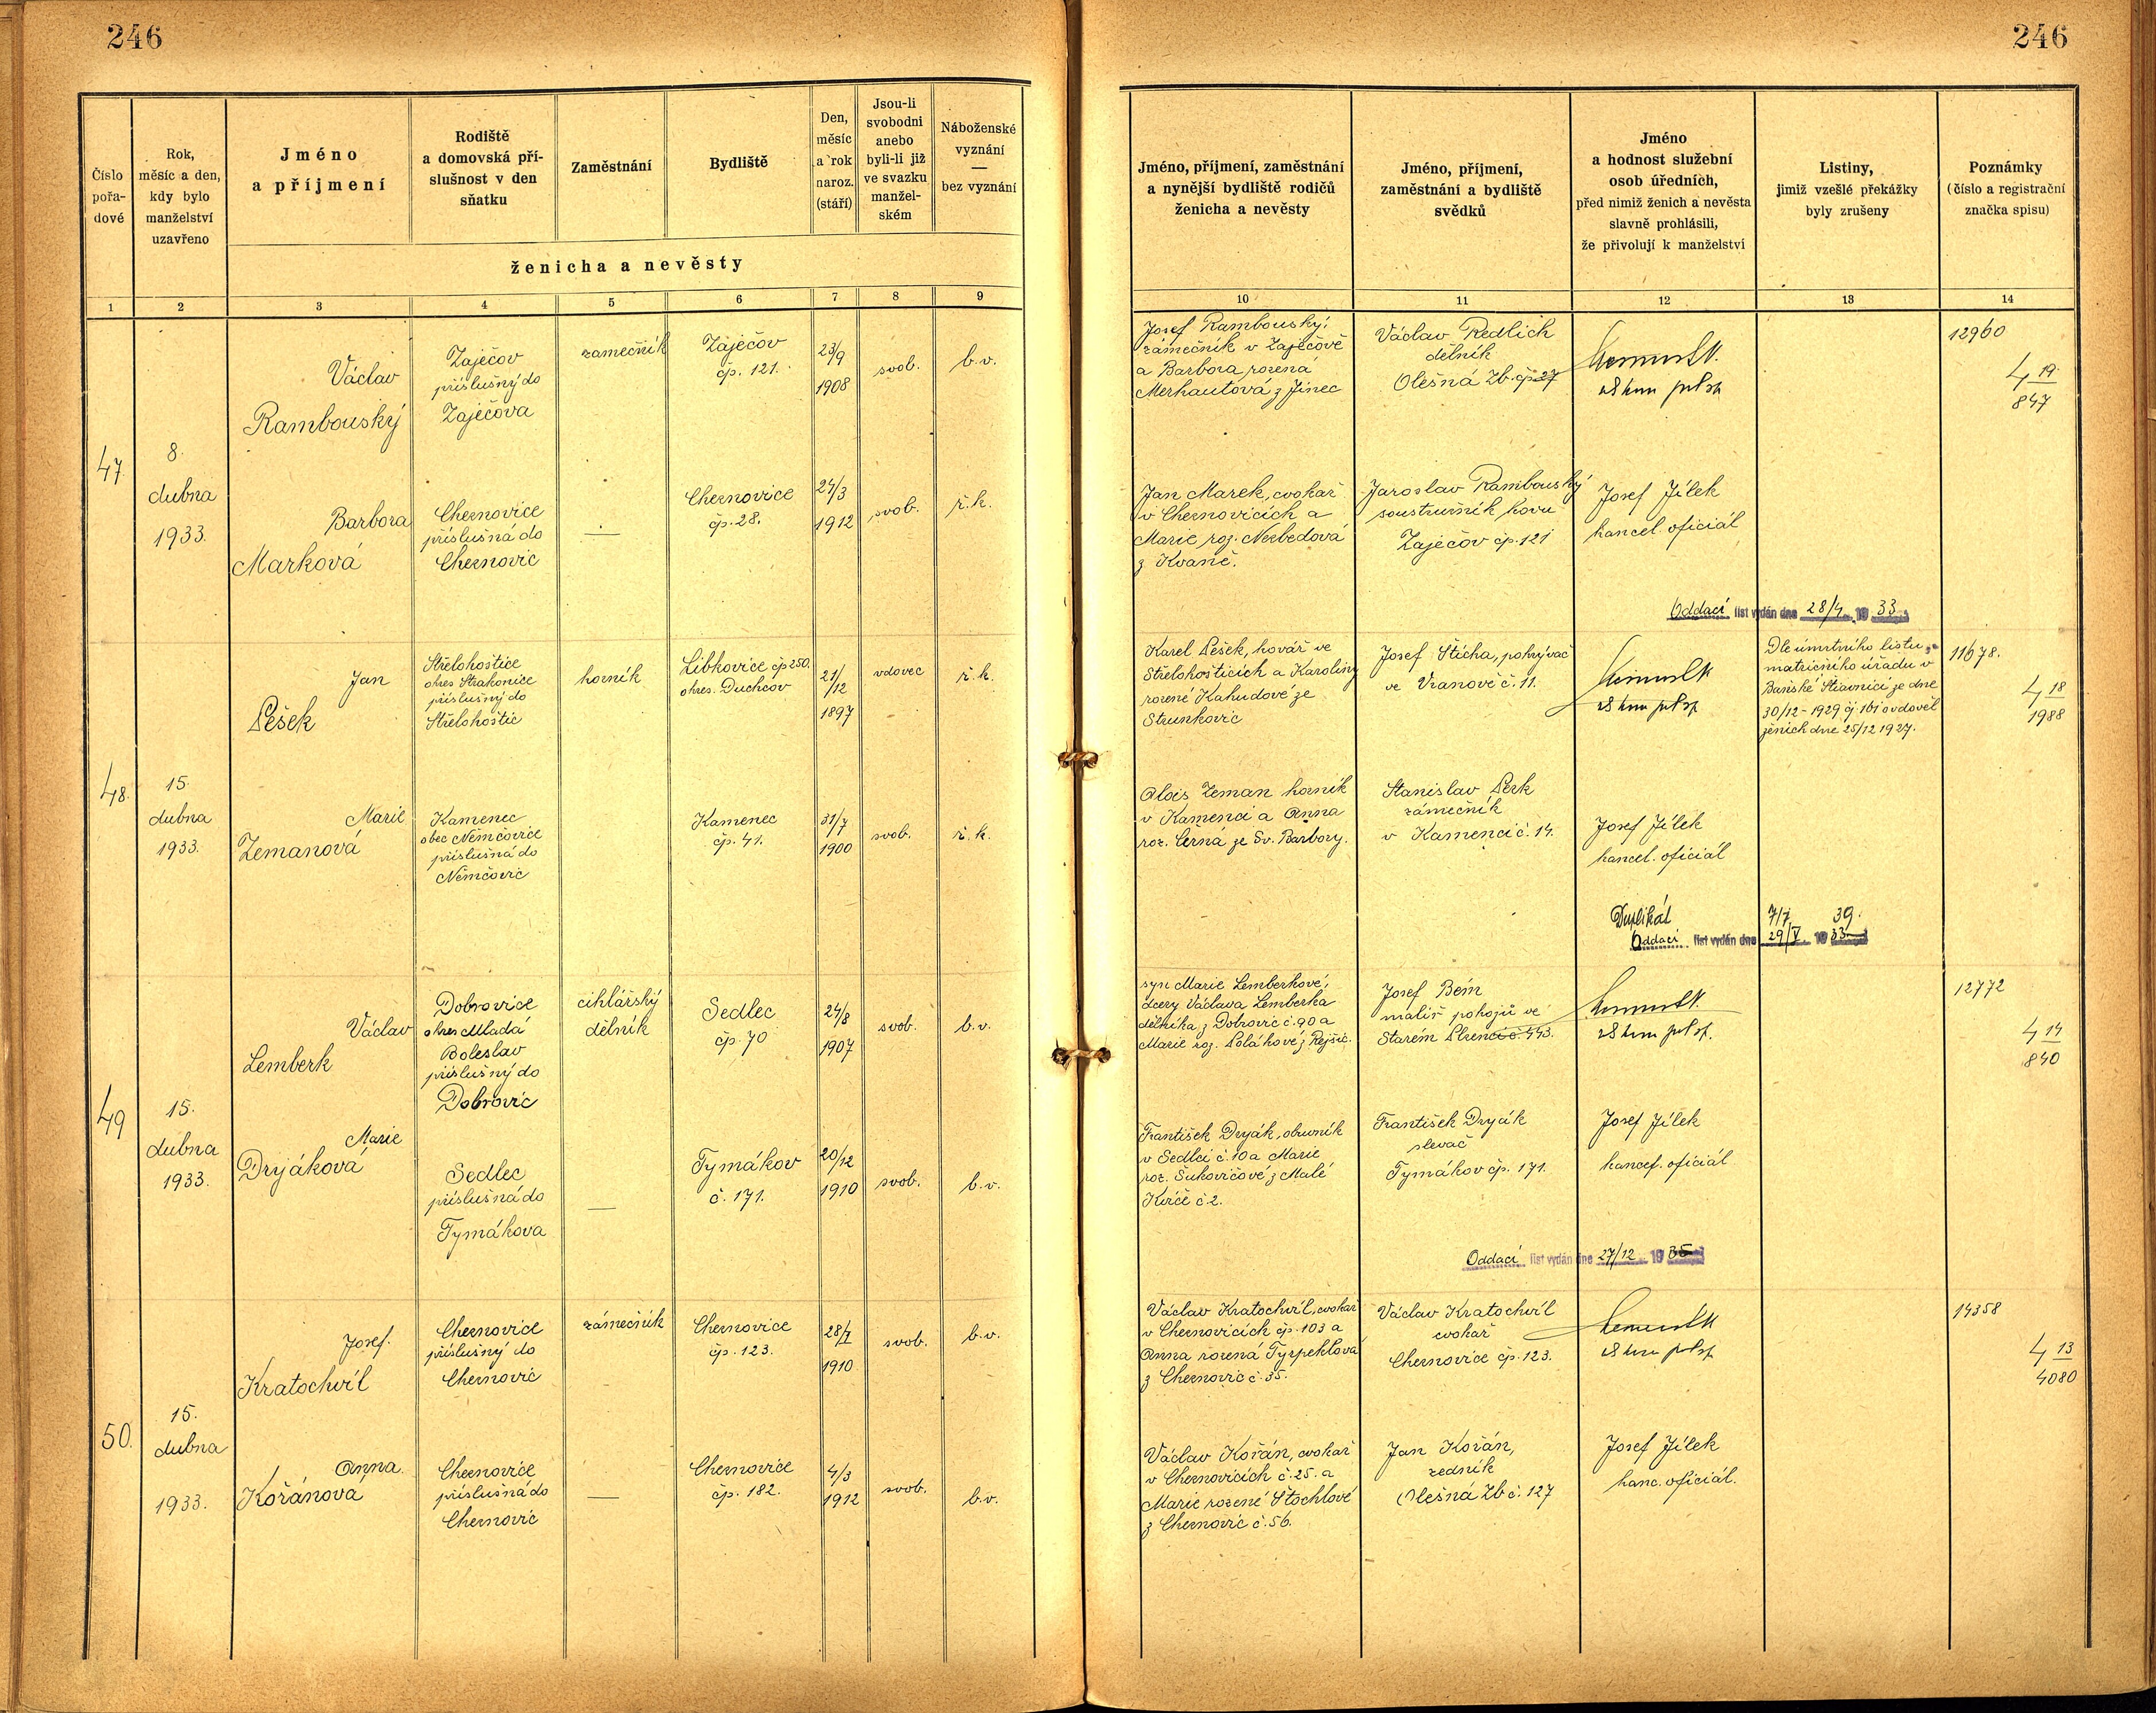 246
246
Číslo pořa-dové
Rok, měsíc a den, kdy bylo manželství uzavřeno
Jméno a příjmení
Rodiště a domovská pří-slušnost v den sňatku
Zaměstnání
Bydliště
Den, měsíc a rok naroz. (stáří)
Jsou-li svobodni anebo byli-li již ve svazku manžel-ském
Náboženské vyznání — bez vyznání
ženicha a nevěsty
Jméno, příjmení, zaměstnání a nynější bydliště rodičů ženicha a nevěsty
Jméno, příjmení, zaměstnání a bydliště svědků
Jméno a hodnost služební osob úředních, před nimiž ženich a nevěsta slavně prohlásili, že přivolují k manželství
Listiny, jimiž vzešlé překážky byly zrušeny
Poznámky (číslo a registrační značka spisu)
1 2 3 4 5 6 7 8 9 10 11 12 13 14
47
8.
dubna
1933.
Václav
Rambouský
Zaječov
příslušný do
Zaječova
zámečník
Zaječov
čp. 121.
23/9
1908
svob.
b.v.
Josef Rambouský,
zámečník v Zaječově
a Barbora rozena
Merhautová z Jinec
Václav Redlich
dělník
Olešná Zb. čp 27
12960
4 19
847
Barbora
Marková
Chernovice
příslušná do
Chernovic
—
Chernovice
čp. 28.
24/3
1912
svob.
ř.k.
Jan Marek, cvokař
v Chernovicích a
Marie roz. Nerbedová
z Kvaně.
Jaroslav Rambouský
soustružník kovu
Zaječov čp. 121
Josef Jílek
kancel. oficiál
Oddací list vydán dne 28/4 1933
48.
15.
dubna
1933.
Jan
Pešek
Střelohoštice
okres Strakonice
příslušný do
Střelohoštic
horník
Libkovice čp 250.
okres. Duchcov
21/12
1897
vdovec
ř.k.
Karel Pešek, kovář ve
Střelohošticích a Karoliny
rozené Kahudové ze
Strunkovic
Josef Štícha, pokrývač
ve Vranově č. 11.
Dle úmrtního listu
matričního úřadu v
Baňské Štiavnici ze dne
30/12 - 1929 čj. 161 ovdověl
ženich dne 25/12 1927.
11678.
4 18
1988
Marie
Zemanová
Kamenec
obec Němčovice
příslušná do
Němčovic
Kamenec
čp. 41.
31/7
1900
svob.
ř.k.
Alois Zeman horník
v Kamenci a Anna
roz. Černá ze Sv. Barbory.
Stanislav Perk
zámečník
v Kamenci č. 14.
Josef Jílek
kancel. oficiál
Duplikát 7/7 39.
Oddací list vydán dne 29/V 1933
49
15.
dubna
1933.
Václav
Lemberk
Dobrovice
okres Mladá
Boleslav
příslušný do
Dobrovic
cihlářský
dělník
Sedlec
čp. 70
24/8
1907
svob.
b.v.
syn Marie Lemberkové,
dcery Václava Lemberka
dělníka z Dobrovic č. 90 a
Marie roz. Polákové z Rejšic.
Josef Bém
malíř pokojů ve
Starém Plzenci č. 443.
12772
4 14
840
Marie
Dryáková
Sedlec
příslušná do
Tymákova
—
Tymákov
č. 171.
20/12
1910
svob.
b.v.
František Dryák, obuvník
v Sedlci č. 10 a Marie
roz. Šukovičové z Malé
Kvíče č. 2.
František Dryák
slevač
Tymákov čp. 171.
Josef Jílek
kancel. oficiál
Oddací list vydán dne 27/12 1935
50.
15.
dubna
1933.
Josef.
Kratochvíl
Chernovice
příslušný do
Chernovic
zámečník
Chernovice
čp. 123.
28/I
1910
svob.
b.v.
Václav Kratochvíl, cvokař
v Chernovicích čp. 103 a
Anna rozená Tyrpeklová
z Chernovic č. 35.
Václav Kratochvíl
cvokař
Chernovice čp. 123.
14358
4 13
4080
Anna.
Kořánová
Chernovice
příslušná do
Chernovic
—
Chernovice
čp. 182.
4/3
1912
svob.
b.v.
Václav Kořán, cvokař
v Chernovicích č. 25. a
Marie rozené Štochlové
z Chernovic č. 56.
Jan Kořán,
zedník
Olešná Zb č. 127
Josef Jílek
kanc. oficiál.